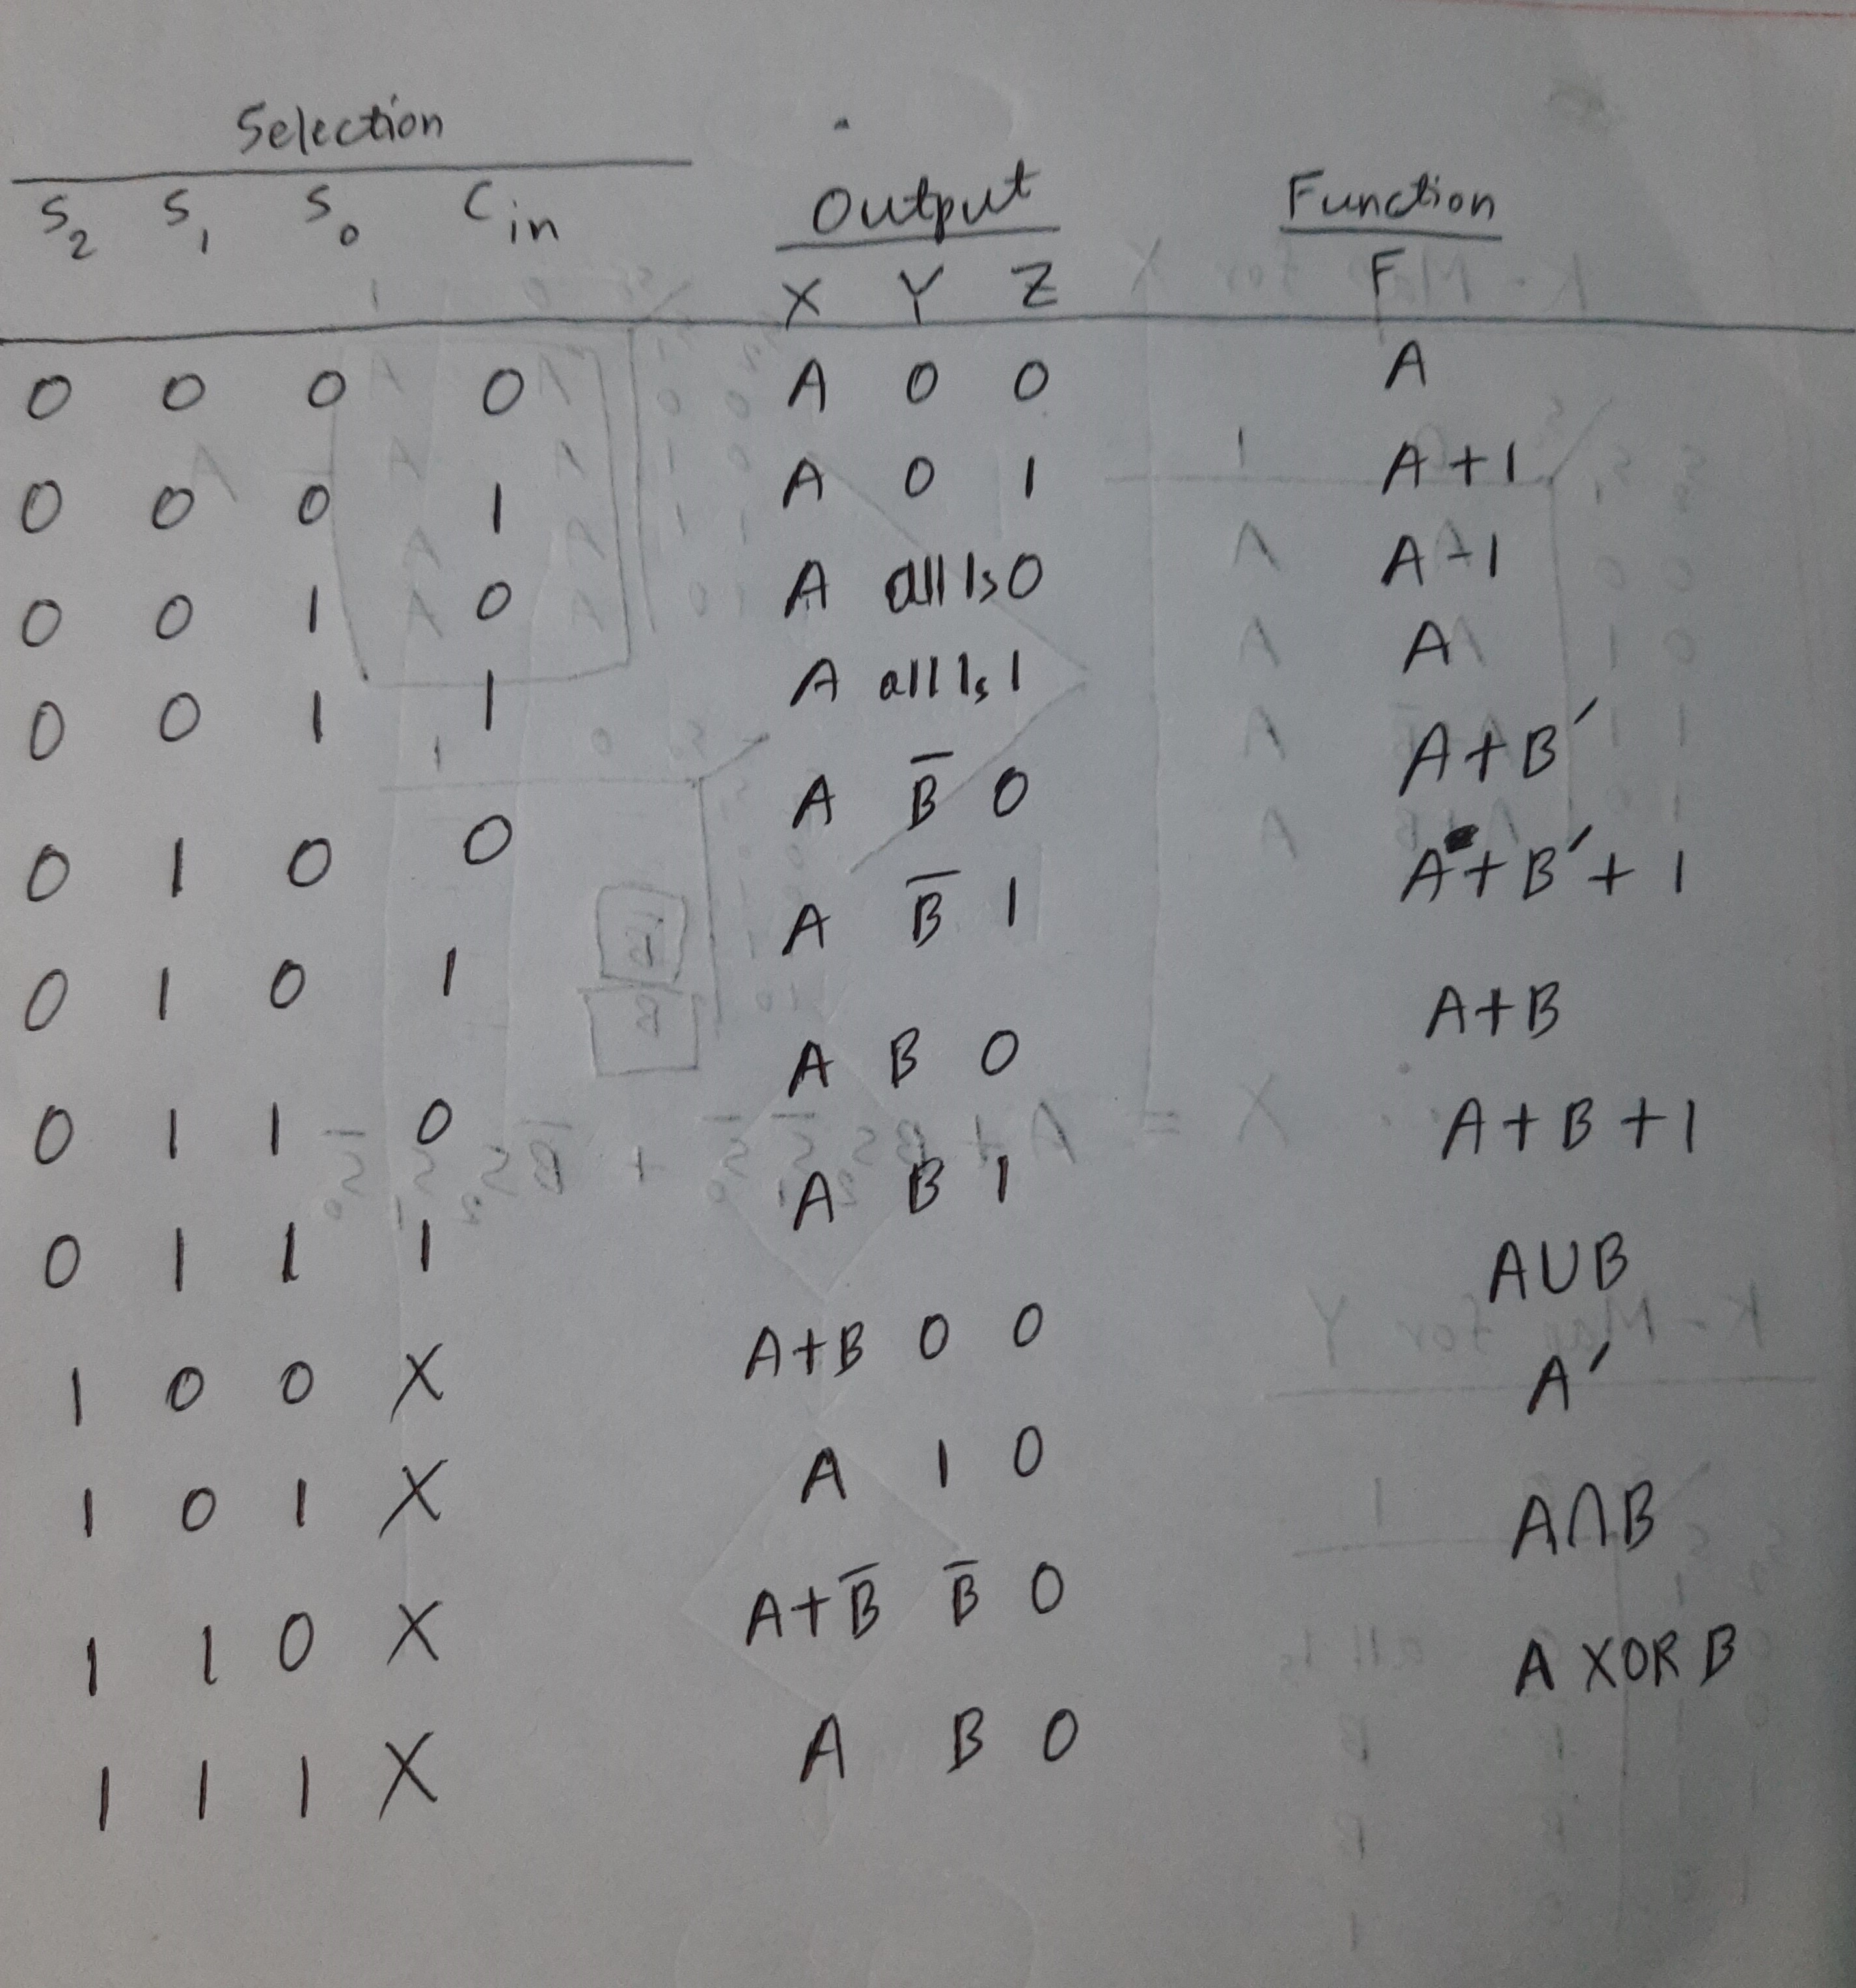 Selection
S₂ S₁ S₀ Cin Output Function
X Y Z F
0 0 0 0 A 0 0 A
0 0 0 1 A 0 1 A+1
0 0 1 0 A all 1s 0 A-1
0 0 1 1 A all 1s 1 A
0 1 0 0 A B̅ 0 A+B'
0 1 0 1 A B̅ 1 A+B'+1
0 1 1 0 A B 0 A+B
0 1 1 1 A B 1 A+B+1
1 0 0 X A+B 0 0 A∪B
1 0 1 X A 1 0 A'
1 1 0 X A+B̅ B̅ 0 A∩B
1 1 1 X A B 0 A XOR B